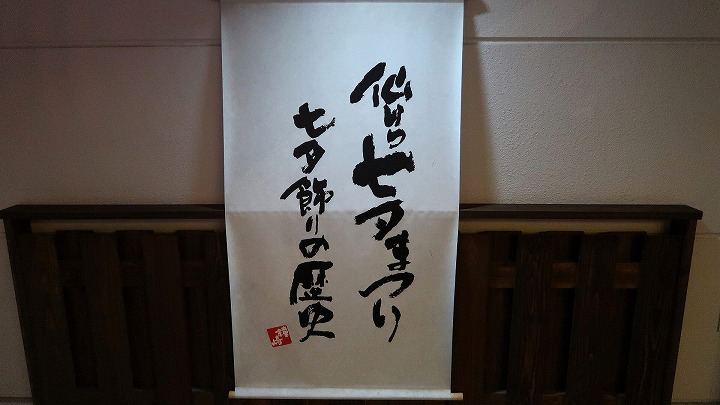 仙台七夕まつり
七夕飾りの歴史